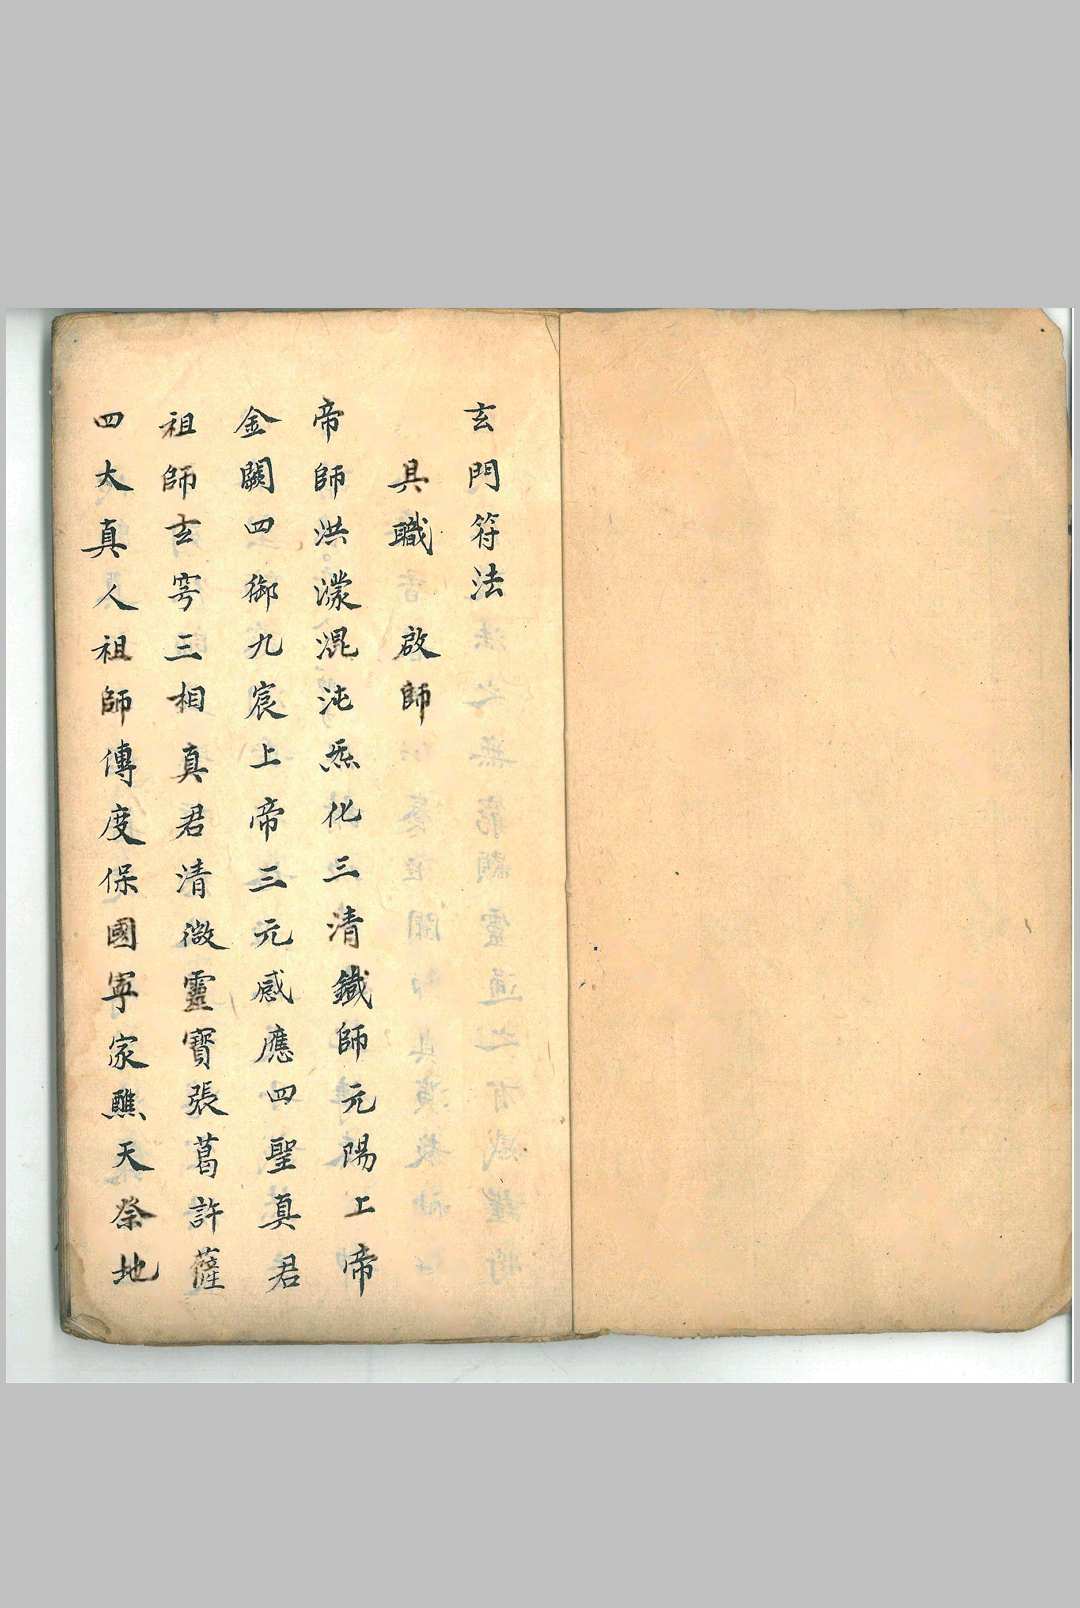 玄門符法
具職　啟師
帝師洪濛混沌炁化三清鐵師元陽上帝
金闕四御九宸上帝三元感應四聖真君
祖師玄穹三相真君清微靈寶張葛許薩
四大真人祖師傳度保國寧家醮天祭地